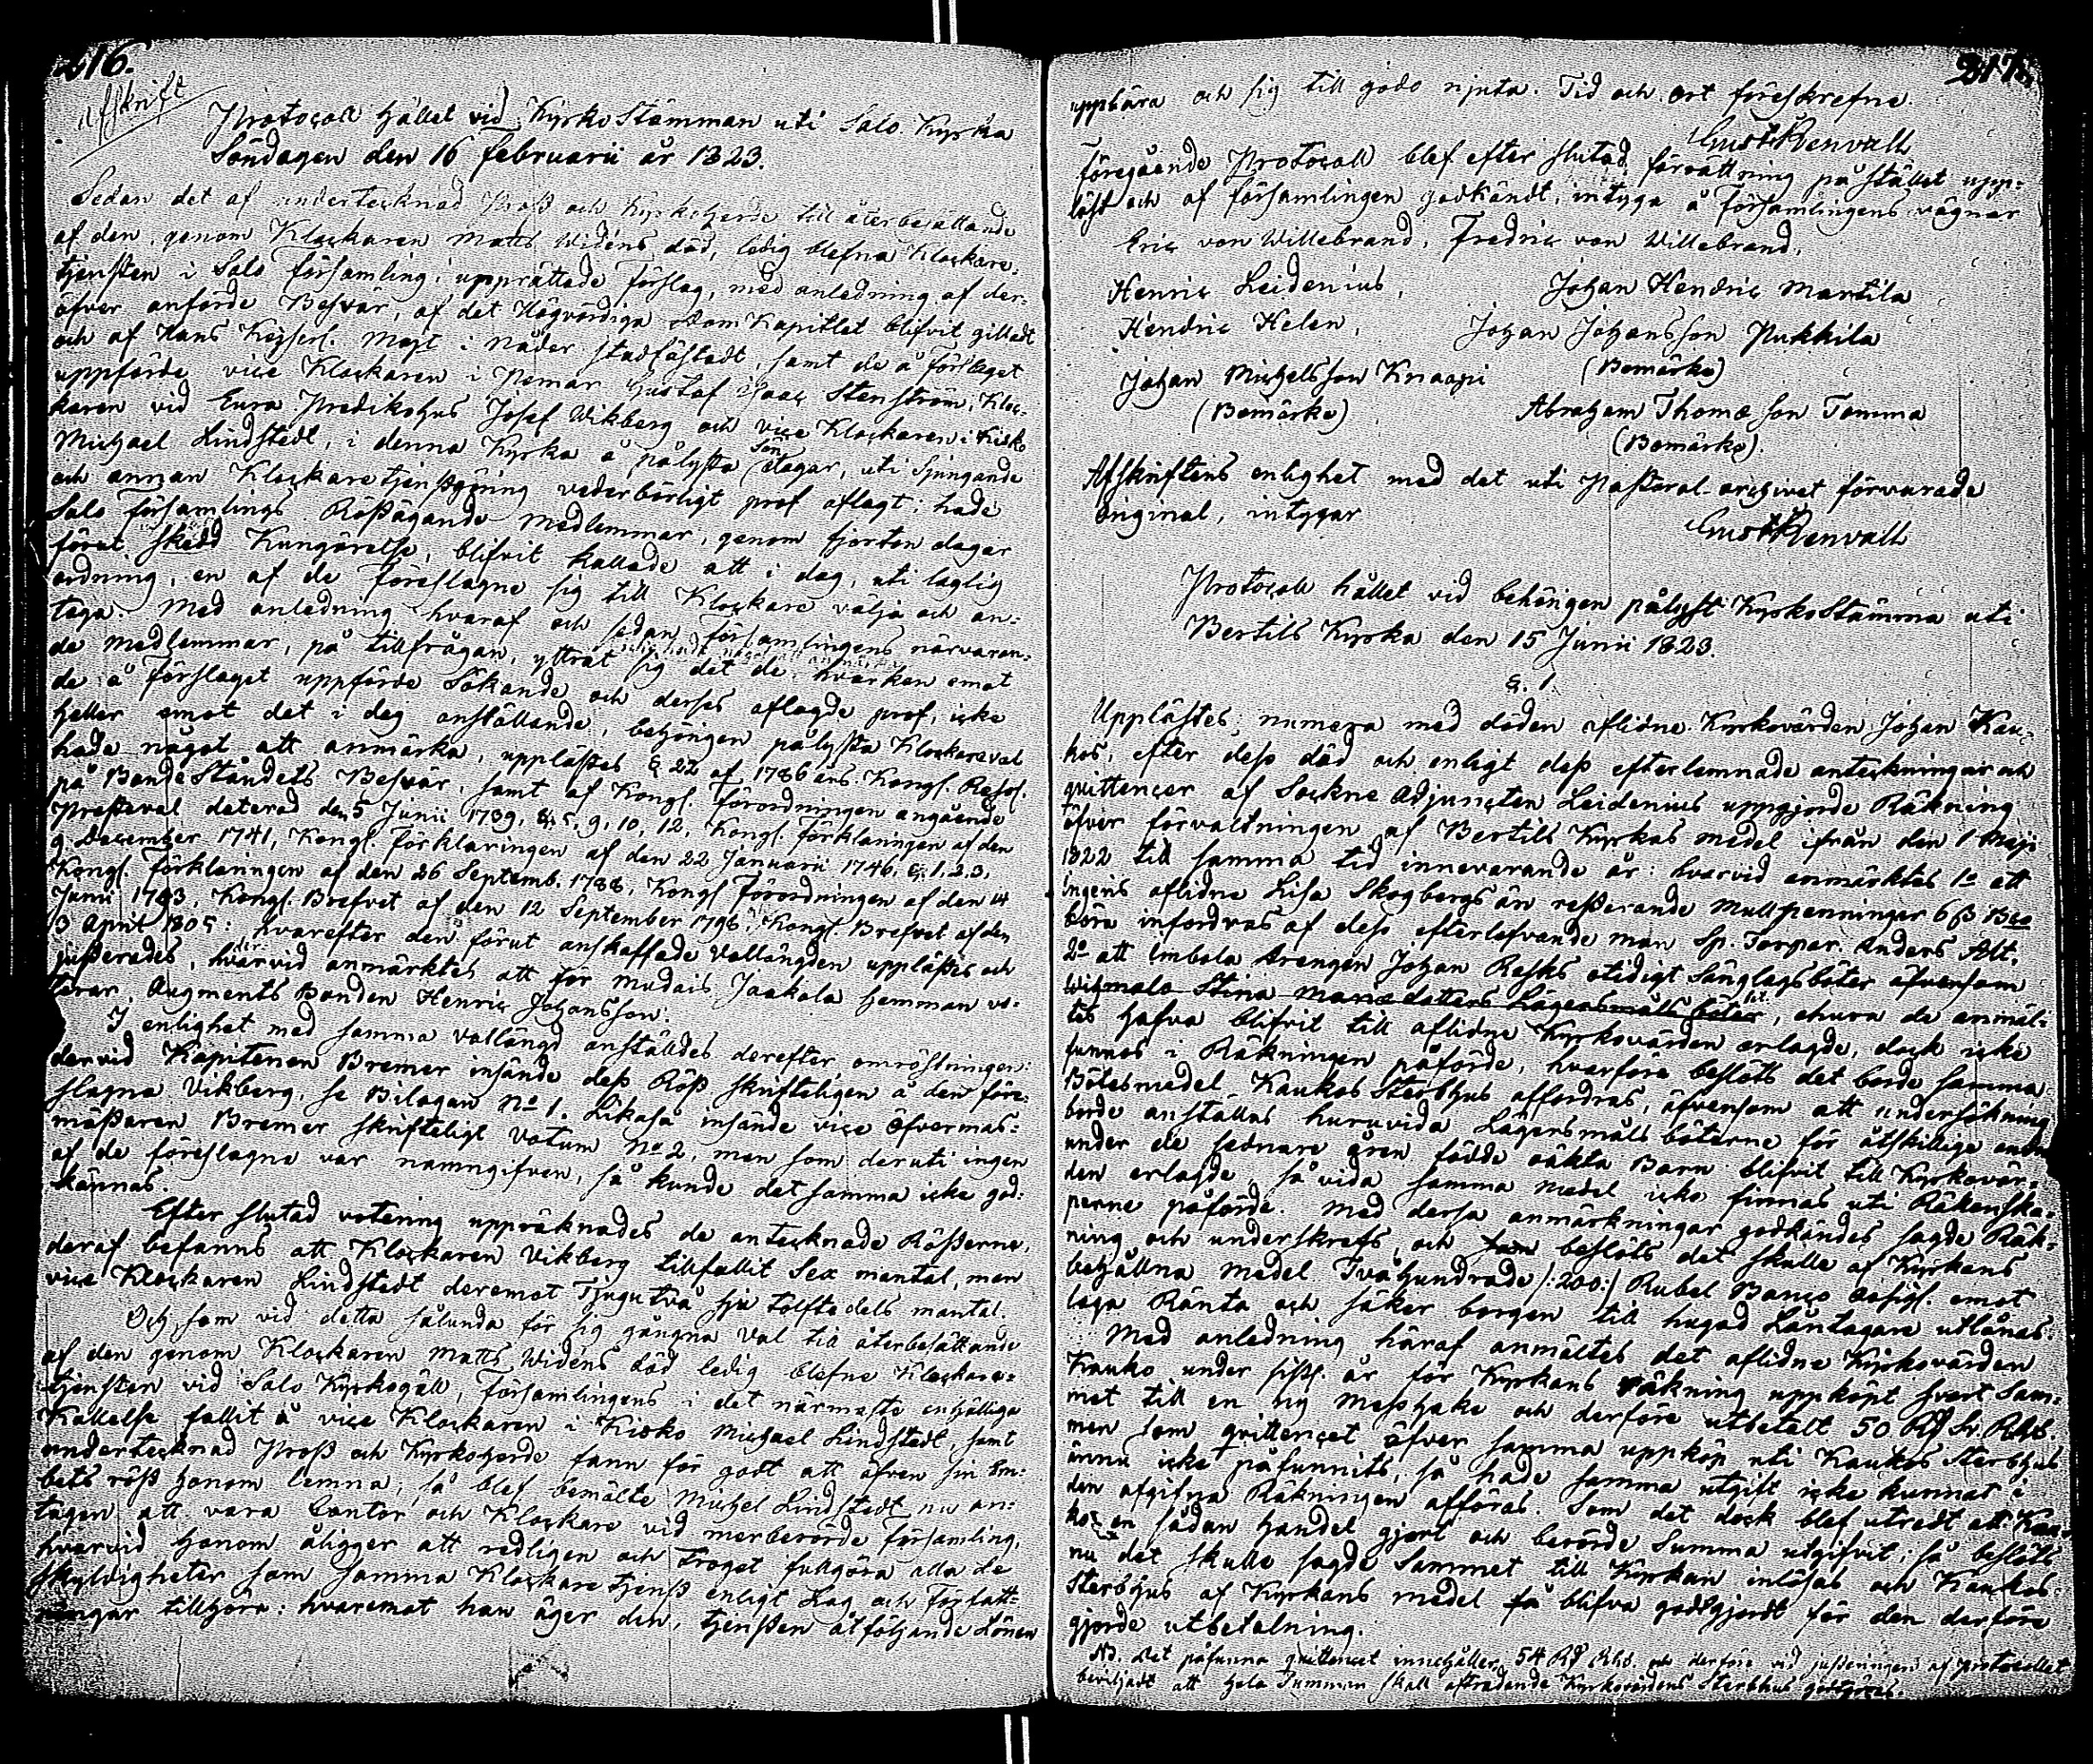 216.
Afskrift
Protocoll hållet vid Kyrko Stämman uti Salo Kyrka
Söndagen den 16 februarii år 1823.
Sedan det af undertecknad Prost och Kyrkoherde till återbesättande
af den, genom Klockaren Matts Widéns död, ledig blefna Klockare-
tjensten i Salo församling, upprättade förslag, med anledning af der-
öfver anförde Besvär, af det Högvördiga Dom Kapitlet blifvit gilladt
och af Hans Kejserl. Majt i Nåder stadfästadt, samt de å förslaget
uppförde vice Klockaren i Pemar Gustaf Isaac Stenström, Kloc-
karen vid Eura Predikohus Josef Wikberg och vice Klockaren i Kisko
Michael Lindstedt, i denna Kyrka å pålysta Söndagar, uti Sjungande
och annan Klockaretjenstgöring vederbörligt prof aflagt; hade
Salo församlings Röstägande medlemmar, genom fjorton dagar
förut skedd Kungörelse, blifvit kallade att i dag, uti laglig
ordning, en af de föreslagne sig till Klockare välja och an-
taga. Med anledning hvaraf och sedan församlingens närvaran-
de medlemmar, på tillfrågan, yttrat sig det de hvarken emot
de å förslaget uppförde Sökande och derses aflagde prof, icke
heller emot det i dag anställande, behörigen pålysta Klockareval
hade något att anmärka, upplästes § 22 af 1786 års Kongl. Resol.
på Bonde Ståndets Besvär, samt af Kongl. Förordningen angående
Presteval daterad den 5 Junii 1739, §§ 5, 9, 10, 12, Kongl. Förklaringen af den
9 December 1741, Kongl. Förklaringen af den 22 Januarii 1746, §§ 1, 2, 3,
Kongl. Förklaringen af den 26 Septemb. 1788, Kongl Förordningen af den 14
Junii 1783, Kongl. Brefvet af den 12 September 1796, Kongl. Brefvet af den
3 April 1805: hvarefter den förut anskaffade Vallängden upplästes och
justerades, hvarvid anmärktes att för Mudais Jaakola hemman vo-
terar Augments Bonden Henric Johansson.
I enlighet med samma vallängd anställdes derefter omröstningen:
dervid Kapitenen Bremer insände dess Röst skrifteligen å den före-
slagna Vikberg, se Bilagan No 1. Likaså insände vice Öfvermäs-
mästaren Bremer skrifteligt Votum No 2, men som deruti ingen
af de föreslagne var namngifven, så kunde det samma icke god-
kännas.
Efter slutad votering uppräknades de antecknade Rösterne,
deraf befanns att Klockaren Vikberg tillfallit Sex mantal, men
vice Klockaren Lindstedt deremot Tjugutvå sju tolftedels mantal.
Och som vid detta sålunda för sig gångna Val till återbesättande
af den genom Klockaren Matts Widéns död ledig blefne Klockare-
tjensten vid Salo Kyrkogäll, församlingens i det närmaste enhälliga
Kallelse fallit å vice Klockaren i Kisko Michael Lindstedt, samt
undertecknad Prost och Kyrkoherde fann för godt att äfven sin Em-
bets röst honom lemna, så blef bemälte Michel Lindstedt nu an-
tagen att vara Cantor och Klockare vid merberörde församling,
hvarvid honom åligger att redligen och troget fullgöra alla de
skyldigheter som samma Klockare tjenst enligt Lag och Författ-
ningar tillhöra: hvaremot han äger den, tjensten åtföljande Lönen
217.
uppbära och sig till godo njuta. Tid och ort föreskrefne.
Gust Renvall
Föregående Protocoll blef efter slutad förrättning på stället upp-
läst och af församlingen godkändt, intyga å församlingens vägnar
Eric von Willebrand, Fredric von Willebrand,
Henric Leidenius, Johan Hendric Mantila
Hendric Helen, Johan Johansson Pukkila
Johan Michelsson Knaapi (Bomärke)
(Bomärke) Abraham Thomæ Son Tomma
(Bomärke).
Afskriftens enlighet med det uti Pastoral-archivet förvarade
original, intygar
Gust Renvall
Protocoll hållet vid behörigen pålyst Kyrko Stämma uti
Bertils Kyrka den 15 Junii 1823.
§. 1.
Upplästes, numera med döden aflidne Kyrkovärden Johan Kau-
kos, efter dess död och enligt dess efterlemnade anteckningar och
quittencer af Sockne Adjuncten Leidenius uppgjorde Räkning
öfver förvaltningen af Bertils Kyrkas medel ifrån den 1 Maji
1822 till samma tid innevarande år: hvarvid anmärktes 1o att
Ingeris aflidne Lisa Skogbergs än resterande Mullpenningar 6 ß Bco
böra infordras af dess efterlefvande man Sp. Torpar. Anders Alt,
2o att Umbola Drengen Johan Rasks otidigt Sänglagsböter äfvensom
Wihmalo Stina Mariædotters Lägersmåls böter, ehuru de anmäl-
tes hafva blifvit till aflidne Kyrkovärden erlagde, dock icke
funnes i Räkningen påförde, hvarföre beslöts det borde samma
Bötesmedel Kaukos Sterbhus affordras, äfvensom att undersökning
borde anställas huruvida Lägersmåls böterne för åtskillige andra
under de sednare åren födde oäkta Barn blifvit till Kyrkovär-
den erlagde, så vida samma medel icke finnas uti Räkenska-
perne påförde. Med dersa anmärkningar godkändes sagde Räk-
ning och underskrefs, och beslöts det skulle af Kyrkans
behållna medel Tvåhundrade /:200:/ Rubel Banco Assigl. emot
laga Ränta och säker borgen till hugad Låntagare utlånas.
Med anledning häraf anmältes det aflidne Kyrkovärden
Kauko under sistl. år för Kyrkans räkning uppköpt svart Sam-
met till en ny Messhake och derföre utbetalt 50 Rd Sv. Rgds.
men som quittencet öfver samma uppköp uti Kaukos Sterbhus
ännu icke påfunnits, så hade samma utgift icke kunnat i
den afgifna Räkningen afföras. Som det dock blef utredt att Kau-
ko en sådan handel gjort och berörde Summa utgifvit; så beslöts
nu det skulle sagde Sammet till Kyrkan inlösas och Kaukos
Sterbhus af Kyrkans medel få blifva godtgjordt för den derföre
gjorde utbetalning.
NB. Det påfunna quittencet innehåller 54 Rd Rgds. och derföre vid justeringen af protocollet
beviljadt att hela Summan skall afträdande Kyrkovärdens Sterbhus godtgöras.